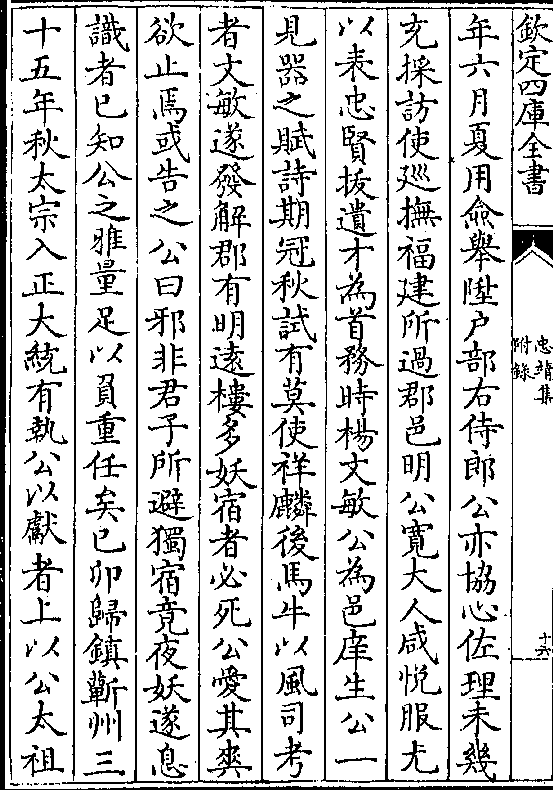 欽定四庫全書
忠靖集
附錄
十六
年六月夏用僉舉陞户部右侍郎公亦協心佐理未幾
充採訪使廵撫福建所過郡邑明公寛大人咸悦服尤
以表忠賢拔遺才為首務時楊文敏公為邑庠生公一
見器之賦詩期冠秋試有莫使祥麟後馬牛以風司考
者文敏遂發解郡有明遠樓多妖宿者必死公愛其爽
欲止焉或告之公曰邪非君子所避獨宿竟夜妖遂息
識者已知公之雅量足以負重任矣己卯歸鎮蘄州三
十五年秋太宗入正大統有執公以獻者上以公太祖